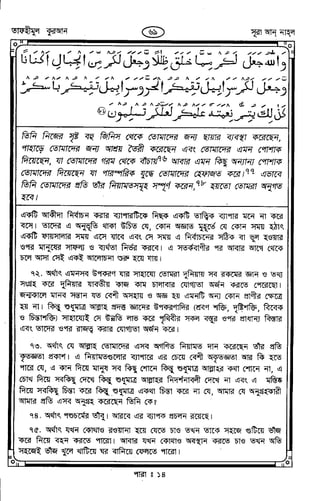 তাফহীমুল কুরআন
৬৯
সূরা আন্ নাহল
وَاللهُ جَعَلَ لَكُمْ مِمَّا خَلَقَ ظِلٰلًا وَّجَعَلَ لَكُمْ مِّنَ الْجِبَالِ اَكْنَانًا
وَّجَعَلَ لَكُمْ سَرَابِيْلَ تَقِيْكُمُ الْحَرَّ وَسَرَابِيْلَ تَقِيْكُمْ بَاْسَكُمْ
كَذٰلِكَ يُتِمُّ نِعْمَتَهٗ عَلَيْكُمْ لَعَلَّكُمْ تُسْلِمُوْنَ
তিনি নিজের সৃষ্ট বহু জিনিস থেকে তোমাদের জন্য ছায়ার ব্যবস্থা করেছেন,
পাহাড়ে তোমাদের জন্য আশ্রয় তৈরী করেছেন এবং তোমাদের এমন পোশাক
দিয়েছেন, যা তোমাদের গরম থেকে বাঁচায়৭৬ আবার এমন কিছু অন্যান্য পোশাক
তোমাদের দিয়েছেন যা পারস্পরিক যুদ্ধে তোমাদের হেফাজত করে।৭৭ এভাবে
তিনি তোমাদের প্রতি তাঁর নিয়ামতসমূহ সম্পূর্ণ করেন,৭৮ হয়তো তোমরা অনুগত
হবে।
একটি জাতীয় নির্বাচন করার ব্যাপারটিকে নিছক একটি তাত্ত্বিক ব্যাপার মনে না করে
বসে। তাদের এ অনুভূতি থাকা উচিত যে, কোন অজ্ঞাত মুহূর্তে যে কোন সময় হঠাৎ
একটি ফায়সালার সময় এসে যাবে এবং সে সময় এ নির্বাচনের সঠিক বা ভুল হওয়ার
ওপর মানুষের সাফল্য ও ব্যর্থতা নির্ভর করবে। এ সতর্কবাণীর পর আবার আগে থেকে
চলে আসা সেই একই আলোচনা শুরু হয়ে যায়।
৭২. অর্থাৎ এমনসব উপকরণ যার সাহায্যে তোমরা দুনিয়ায় সব রকমের জ্ঞান ও তথ্য
সংগ্রহ করে দুনিয়ার যাবতীয় কাজ কাম চালাবার যোগ্যতা অর্জন করতে পেরেছো।
জন্মকালে মানব সন্তান যত বেশী অসহায় ও অজ্ঞ হয় এমনটি অন্য কোন প্রাণীর ক্ষেত্রে
হয় না। কিন্তু শুধুমাত্র আল্লাহ প্রদত্ত জ্ঞানের উপকরণাদির (শ্রবণ শক্তি, দৃষ্টিশক্তি, বিবেক
ও চিন্তাশক্তি) সাহায্যেই সে উন্নতি লাভ করে পৃথিবীর সকল বস্তুর ওপর প্রাধান্য বিস্তার
এবং তাদের ওপর রাজত্ব করার যোগ্যতা অর্জন করে।
৭৩. অর্থাৎ যে আল্লাহ তোমাদের এসব অগণিত নিয়ামত দান করেছেন তাঁর প্রতি
কৃতজ্ঞতা প্রকাশ। এ নিয়ামতগুলোর ব্যাপারে এর চেয়ে বেশী অকৃতজ্ঞতা আর কি হতে
পারে যে, এ কান দিয়ে মানুষ সব কিছু শোনে কিন্তু শুধুমাত্র আল্লাহর কথা শোনে না, এ
চোখ দিয়ে সবকিছু দেখে কিন্তু শুধুমাত্র আল্লাহর নিদর্শনাবলী দেখে না এবং এ মস্তিষ্ক
দিয়ে সবকিছু চিন্তা করে কিন্তু শুধুমাত্র একথা চিন্তা করে না যে, আমার যে অনুগ্রহকারী
আমার প্রতি এসব অনুগ্রহ করেছেন তিনি কে?
৭৪. অর্থাৎ পশুচর্মের তাঁবু। আরবে এর ব্যাপক প্রচলন রয়েছে।
৭৫. অর্থাৎ যখন কোথাও রওয়ানা হয়ে যেতে চাও তখন তাকে সহজে গুটিয়ে ভাঁজ
করে নিয়ে বহন করতে পারো। আবার যখন কোথাও অবস্থান করতে চাও তখন অতি
সহজেই ভাঁজ খুলে খাটিয়ে ঘর বানিয়ে ফেলতে পারো।
পারা : ১৪